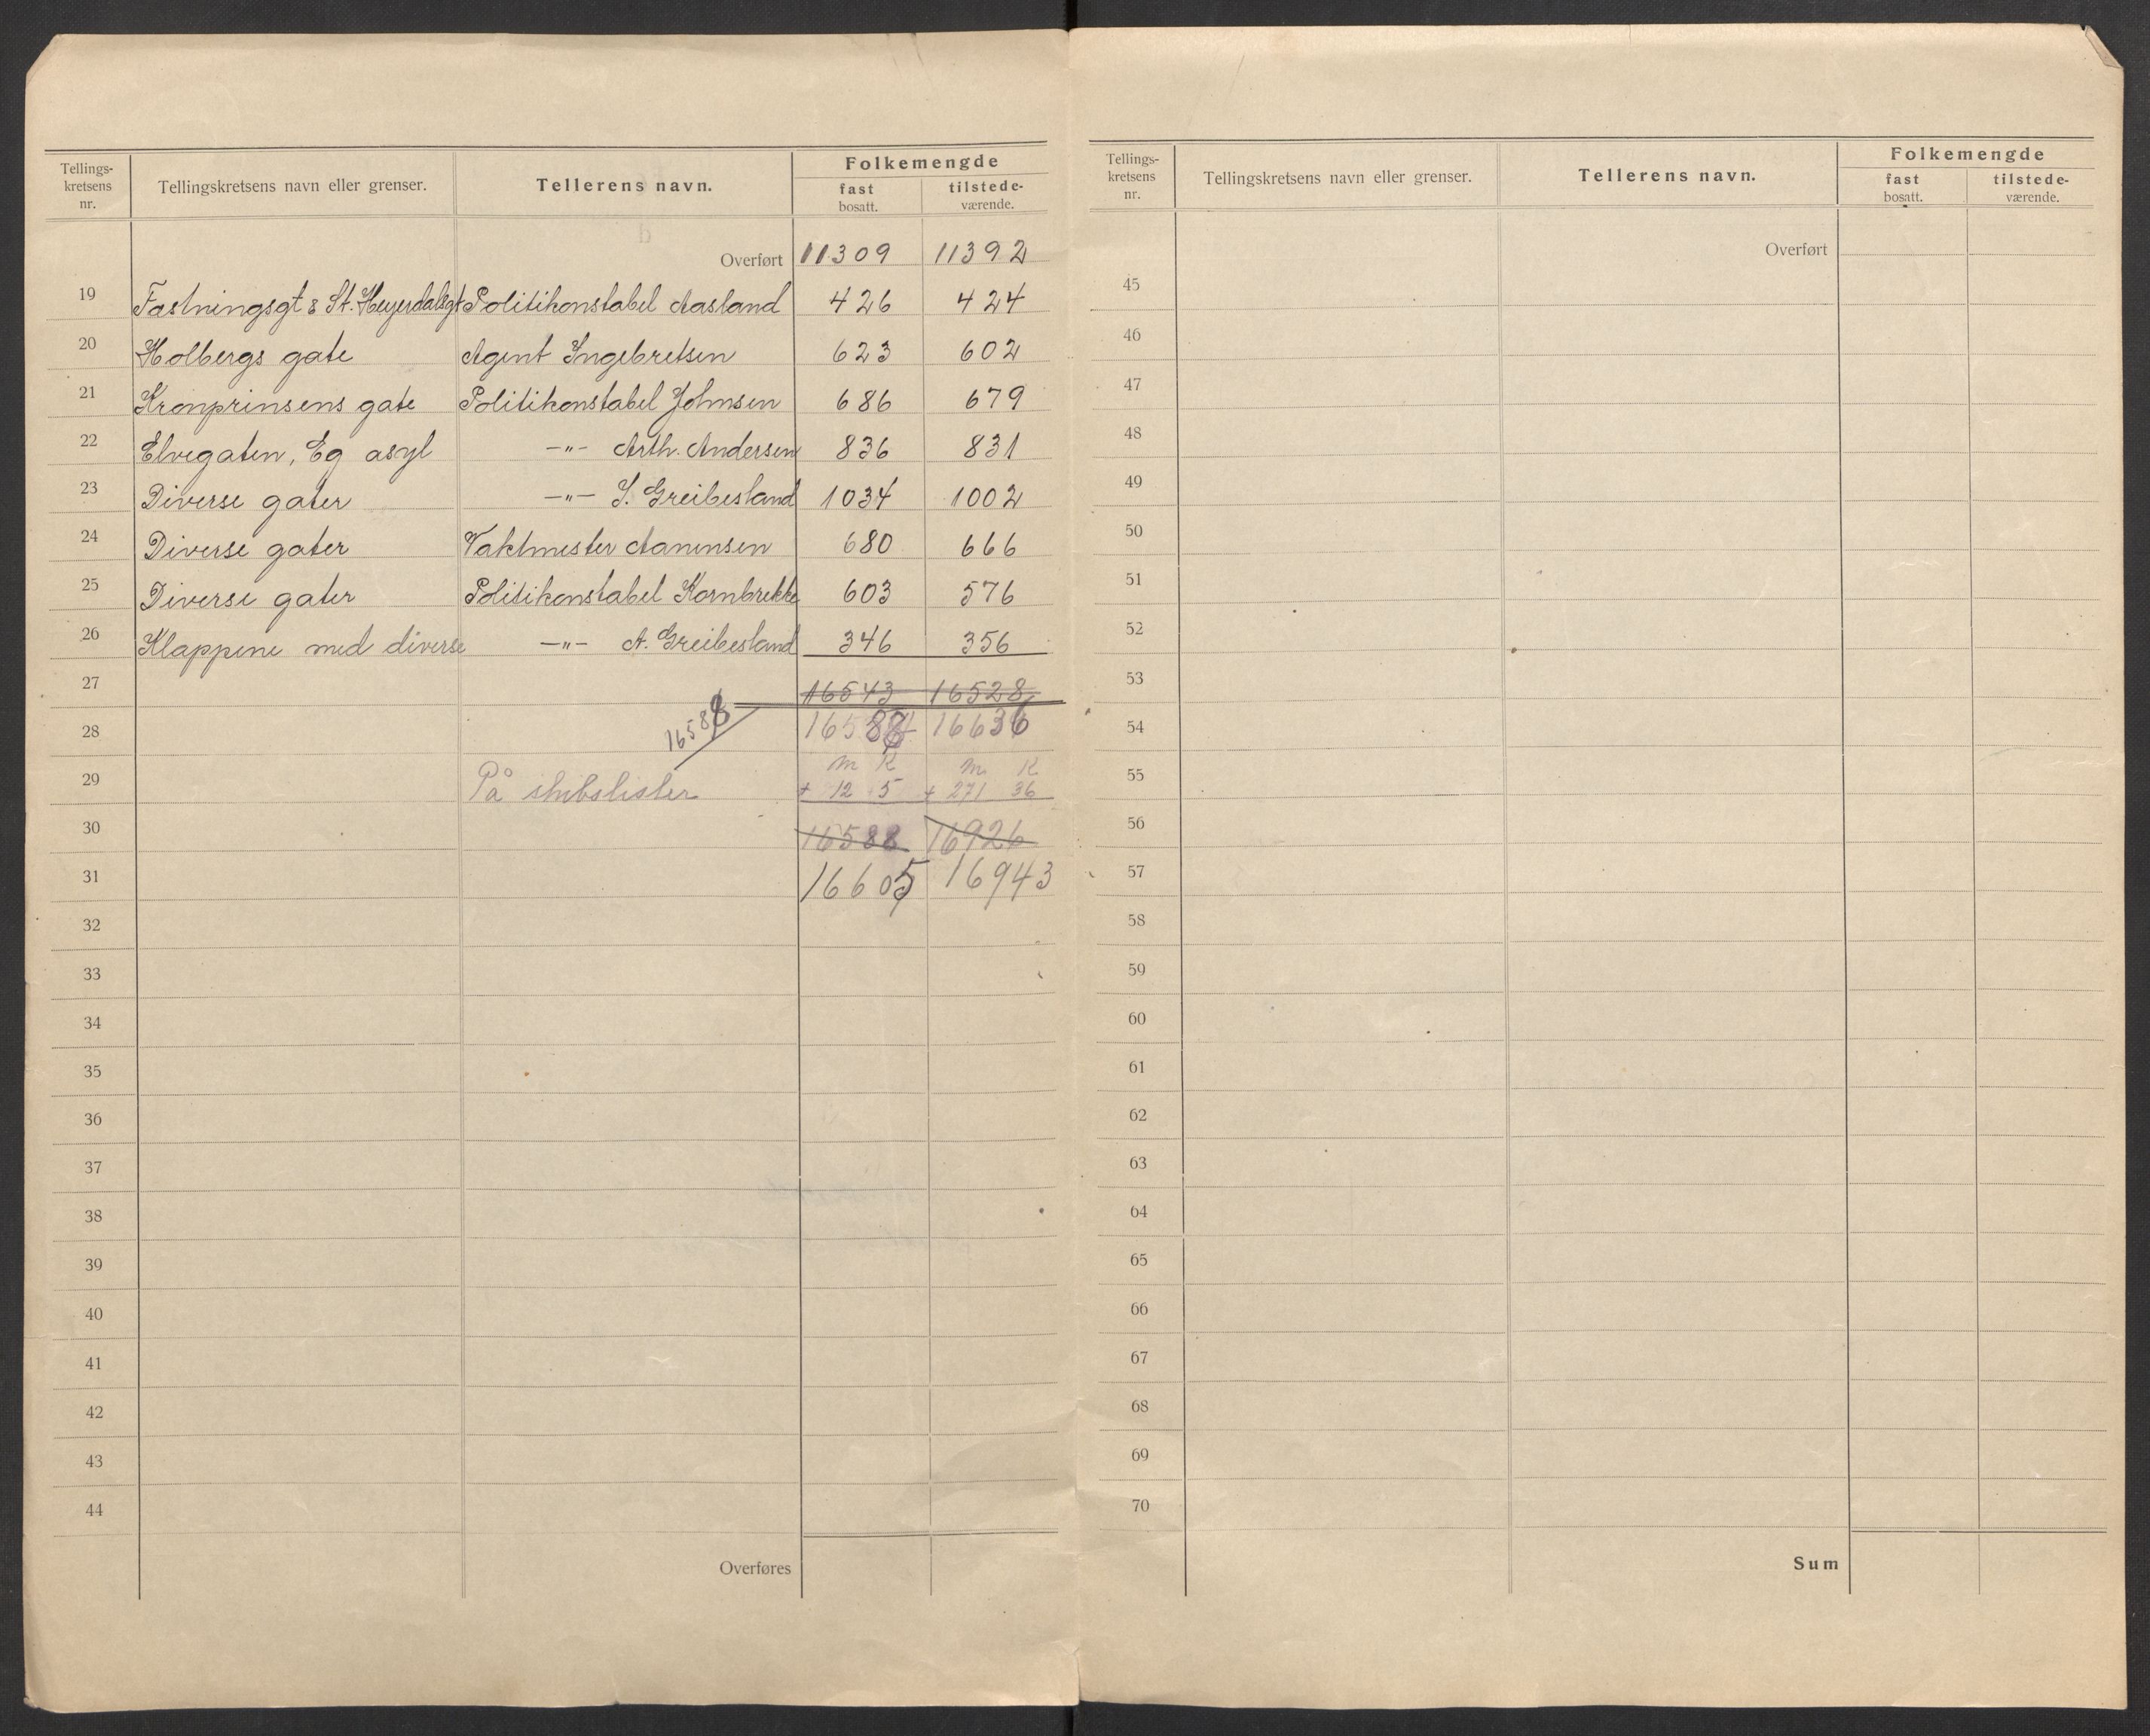 Tellings-kretsens nr. Tellingskretsens navn eller grenser. Tellerens navn. Folkemengde fast bosatt. tilstede-værende.
Overført 11309 11392
19 Fæstningsgt & St. Heyerdalsgt Politikonstabel Aasland 426 424
20 Holbergs gate Agent Ingebretsen 623 602
21 Kronprinsens gate Politikonstabel Johnsen 686 679
22 Elvegaten, Eg asyl —"— Arth. Andersen 836 831
23 Diverse gater —"— I. Greibesland 1034 1002
24 Diverse gater Vaktmester Aanensen 680 666
25 Diverse gater Politikonstabel Kornbrekke 603 576
26 Klappene med diverse —"— A. Greibesland 346 356
27 16543 16528
16588
28 16588 16636
m K m K
29 På skibslister + 12 5 + 271 36
30 16588 16926
31 16605 16943
32
33
34
35
36
37
38
39
40
41
42
43
44
Overføres
Tellings-kretsens nr. Tellingskretsens navn eller grenser. Tellerens navn. Folkemengde fast bosatt. tilstede-værende.
Overført
45
46
47
48
49
50
51
52
53
54
55
56
57
58
59
60
61
62
63
64
65
66
67
68
69
70
Sum